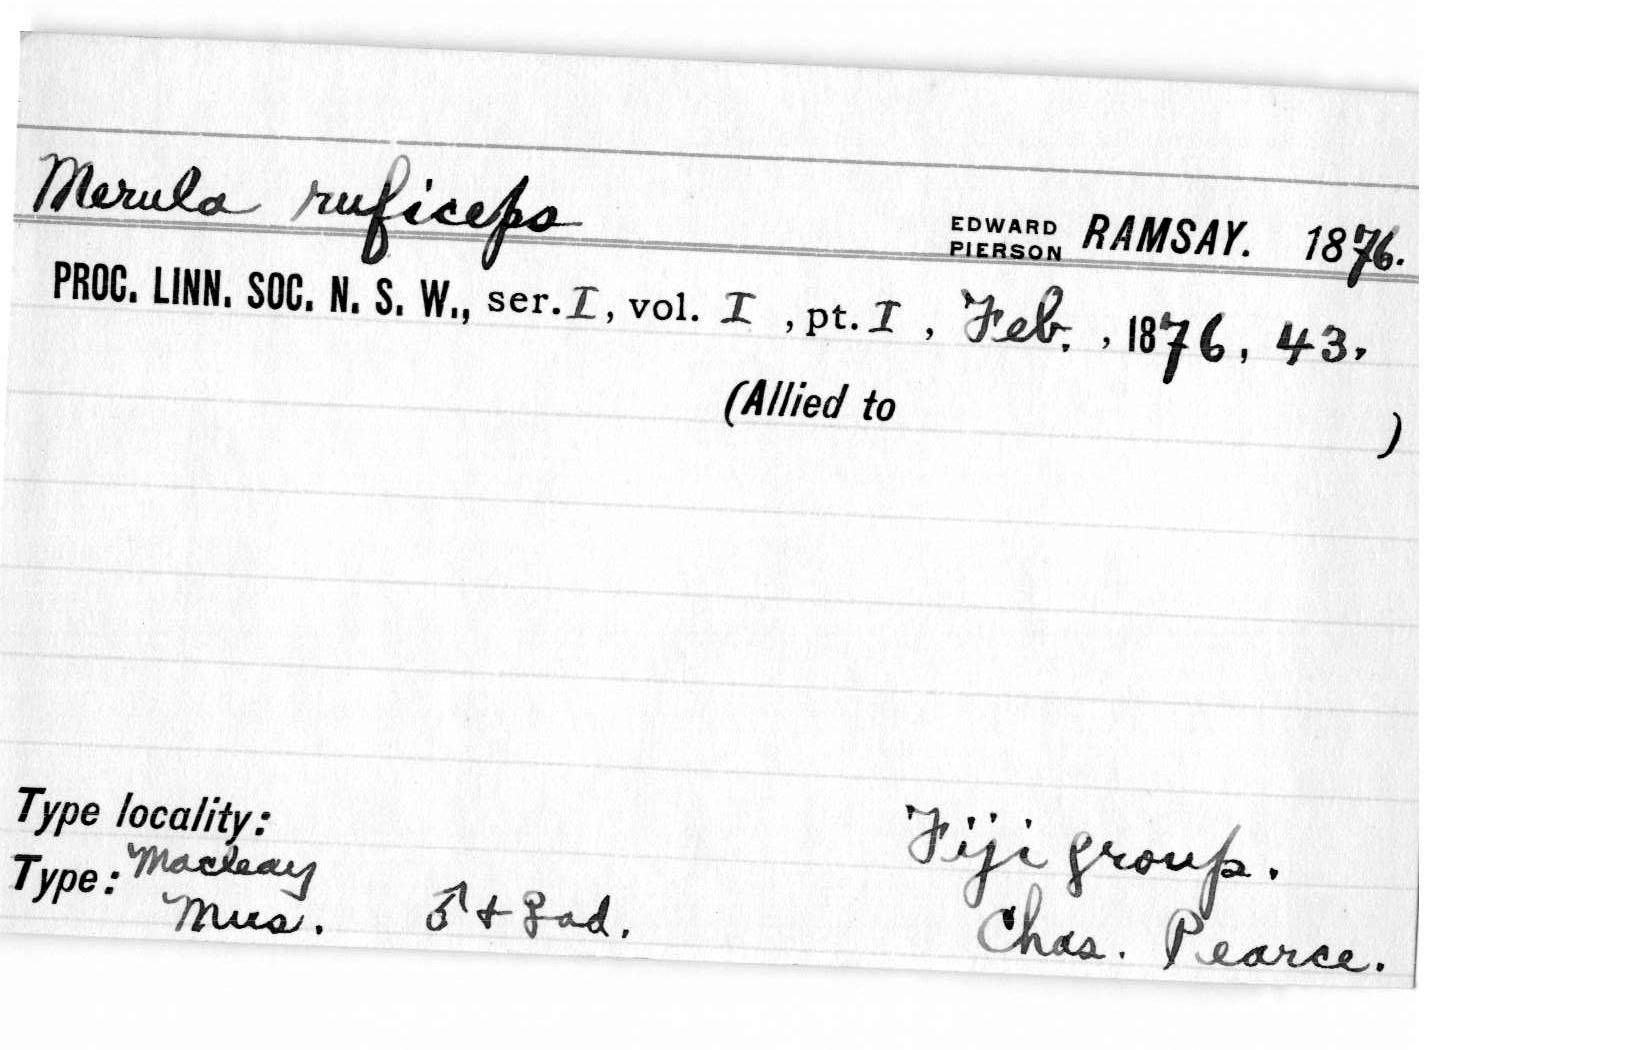 Merula ruficeps EDWARD PIERSON RAMSAY. 1876.
PROC. LINN. SOC. N. S. W., ser. I, vol. I, pt. I, Feb., 1876, 43.
(Allied to )
Type locality: Fiji group.
Type: Macleay Mus. ♂ + ♀ ad. Chas. Pearce.